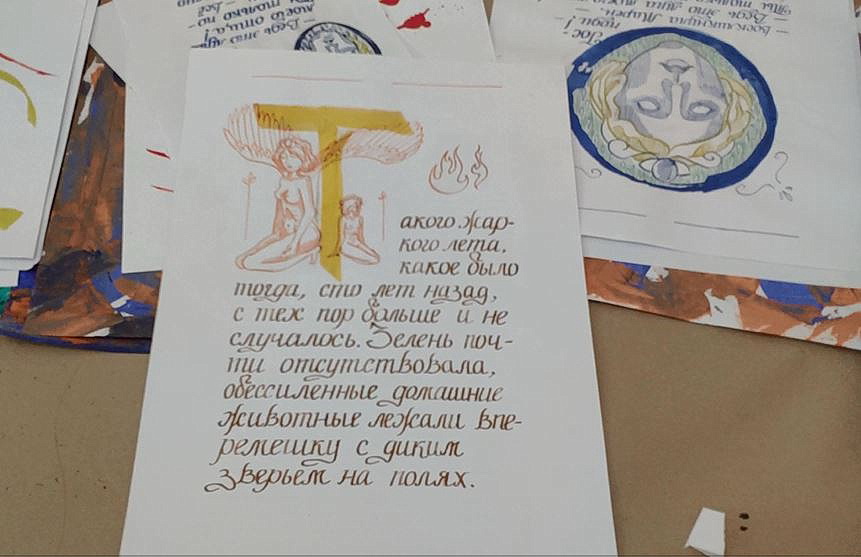 Такого жар-
кого лета,
какое было
тогда, сто лет назад,
с тех пор больше и не
случалось. Зелень поч-
ти отсутствовала,
обессиленные домашние
животные лежали впе-
ремешку с диким
зверьем на полях.